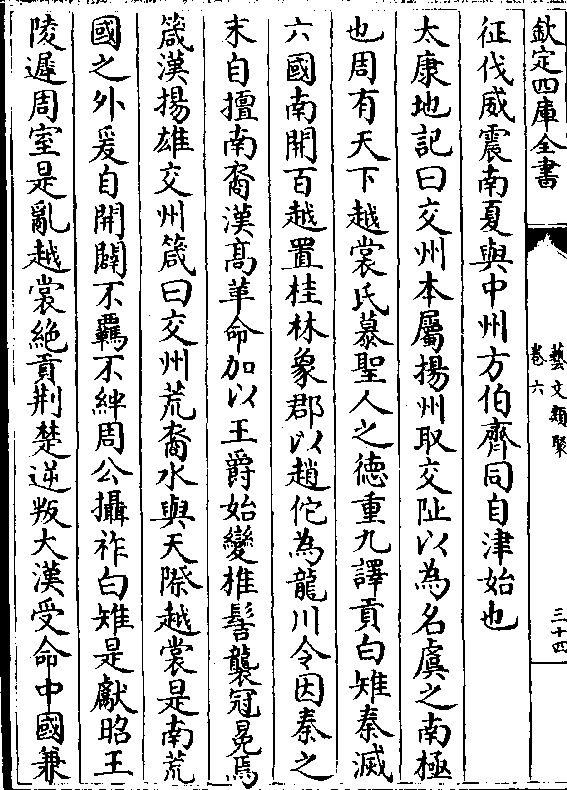 欽定四庫全書
藝文類聚
卷六
三十四
征伐威震南夏與中州方伯齊同自津始也
太康地記曰交州本屬揚州取交阯以為名虞之南極
也周有天下越裳氏慕聖人之徳重九譯貢白雉秦滅
六國南開百越置桂林象郡以趙佗為龍川令因秦之
末自擅南裔漢髙革命加以王爵始變椎髻襲冠冕焉
箴漢揚雄交州箴曰交州荒裔水與天際越裳是南荒
國之外爰自開闢不羈不絆周公攝祚白雉是獻昭王
陵遲周室是亂越裳絶貢荆楚逆叛大漢受命中國兼